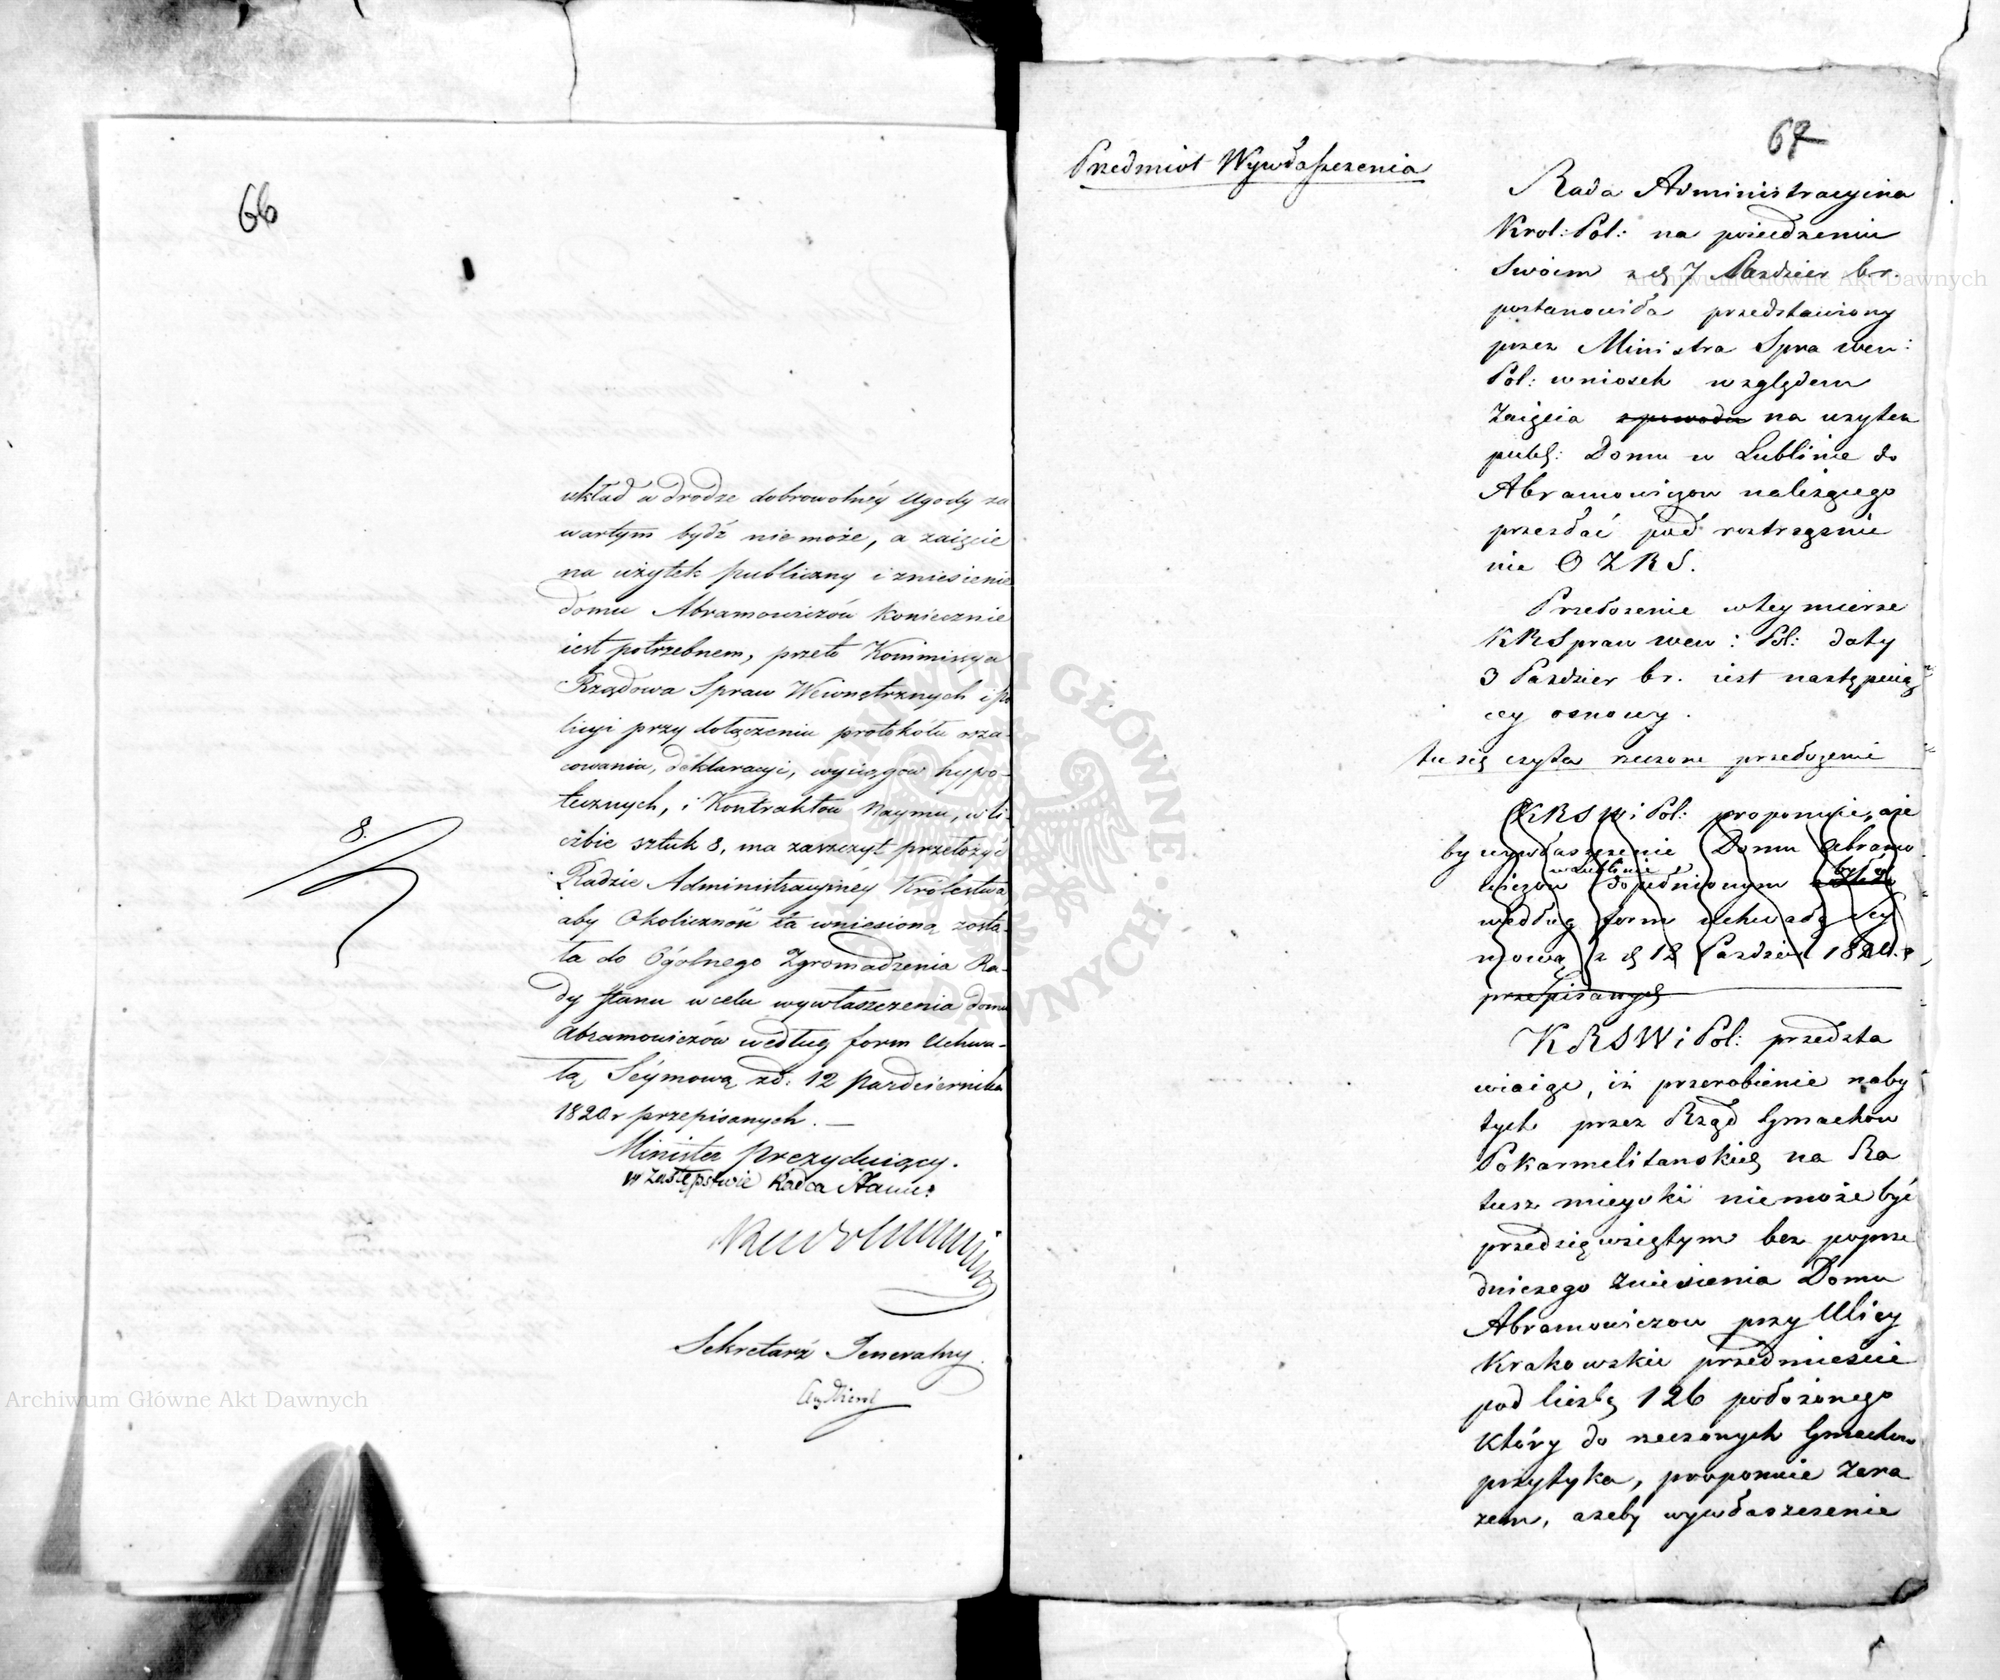 66
układ w drodze dobrowolnéy ugody za
wartym bydź nie może, a zaięcie
na użytek publiczny i zniesienie
domu Abramowiczów koniecznie
iest potrzebnem, przeto Kommissya
Rządowa Spraw Wewnętrznych i Po
licyi przy dołączeniu protokółu osza-
cowania, deklaracyi, wyciągow hypo-
tecznych, i Kontraktów Naymu, w li-
czbie sztuk 8, ma zaszczyt przełożyć
Radzie Administracyjnéy Królestwa
aby Okoliczność ta wniesioną zosta-
ła do Ogólnego Zgromadzenia Ra-
dy Stanu w celu wywłaszczenia domu
Abramowiczów według form Uchwa-
łą Séymową z d: 12 Października
1820 r przepisanych. —
8.
Minister Prezyduiący.
w zastępstwie Radca Stanu
Sekretarz Jeneralny
67
Przedmiot Wywłaszczenia
Rada Administracyina
Krol: Pol: na posiedzeniu
swoim z d 7 Pazdzier b. r.
postanowiła przedstawiony
przez Ministra Spra wew:
Pol: wniosek względem
Zaięcia z powodu na uzytek
publ: Domu w Lublinie do
Abramowiczow należącego
przesłać pod roztrząśnie
nie O Z R S.
Przełożenie w tey mierze
K R Spraw wew: Pol: daty
3 Pazdzier br. iest następuią
cey osnowy.
tu się czyta rzeczone przełożenie
K R S W i Pol: proponuie, aże
by wywłaszczenie Domu Abramo
wiczow w Lublinie dopełnionym było
według form uchwałą Sey
mową z d 12 Pazdzier 1820 r,
przepisanych
K R S W i Pol: przedsta
wiaiąc, iż przerobienie naby
tych przez Rząd Gmachow
Pokarmelitanskich na Ra
tusz mieyski nie może być
przedsięwziętym bez poprze
dniczego Zniesienia Domu
Abramowiczow przy Ulicy
Krakowskie przedmieście
pod liczbą 126 położonego
który do rzeczonych Gmachow
przytyka, proponuie Zara
zem, ażeby wywłaszczenie
Archiwum Główne Akt Dawnych
Archiwum Główne Akt Dawnych
ARCHIWUM GŁÓWNE AKT DAWNYCH